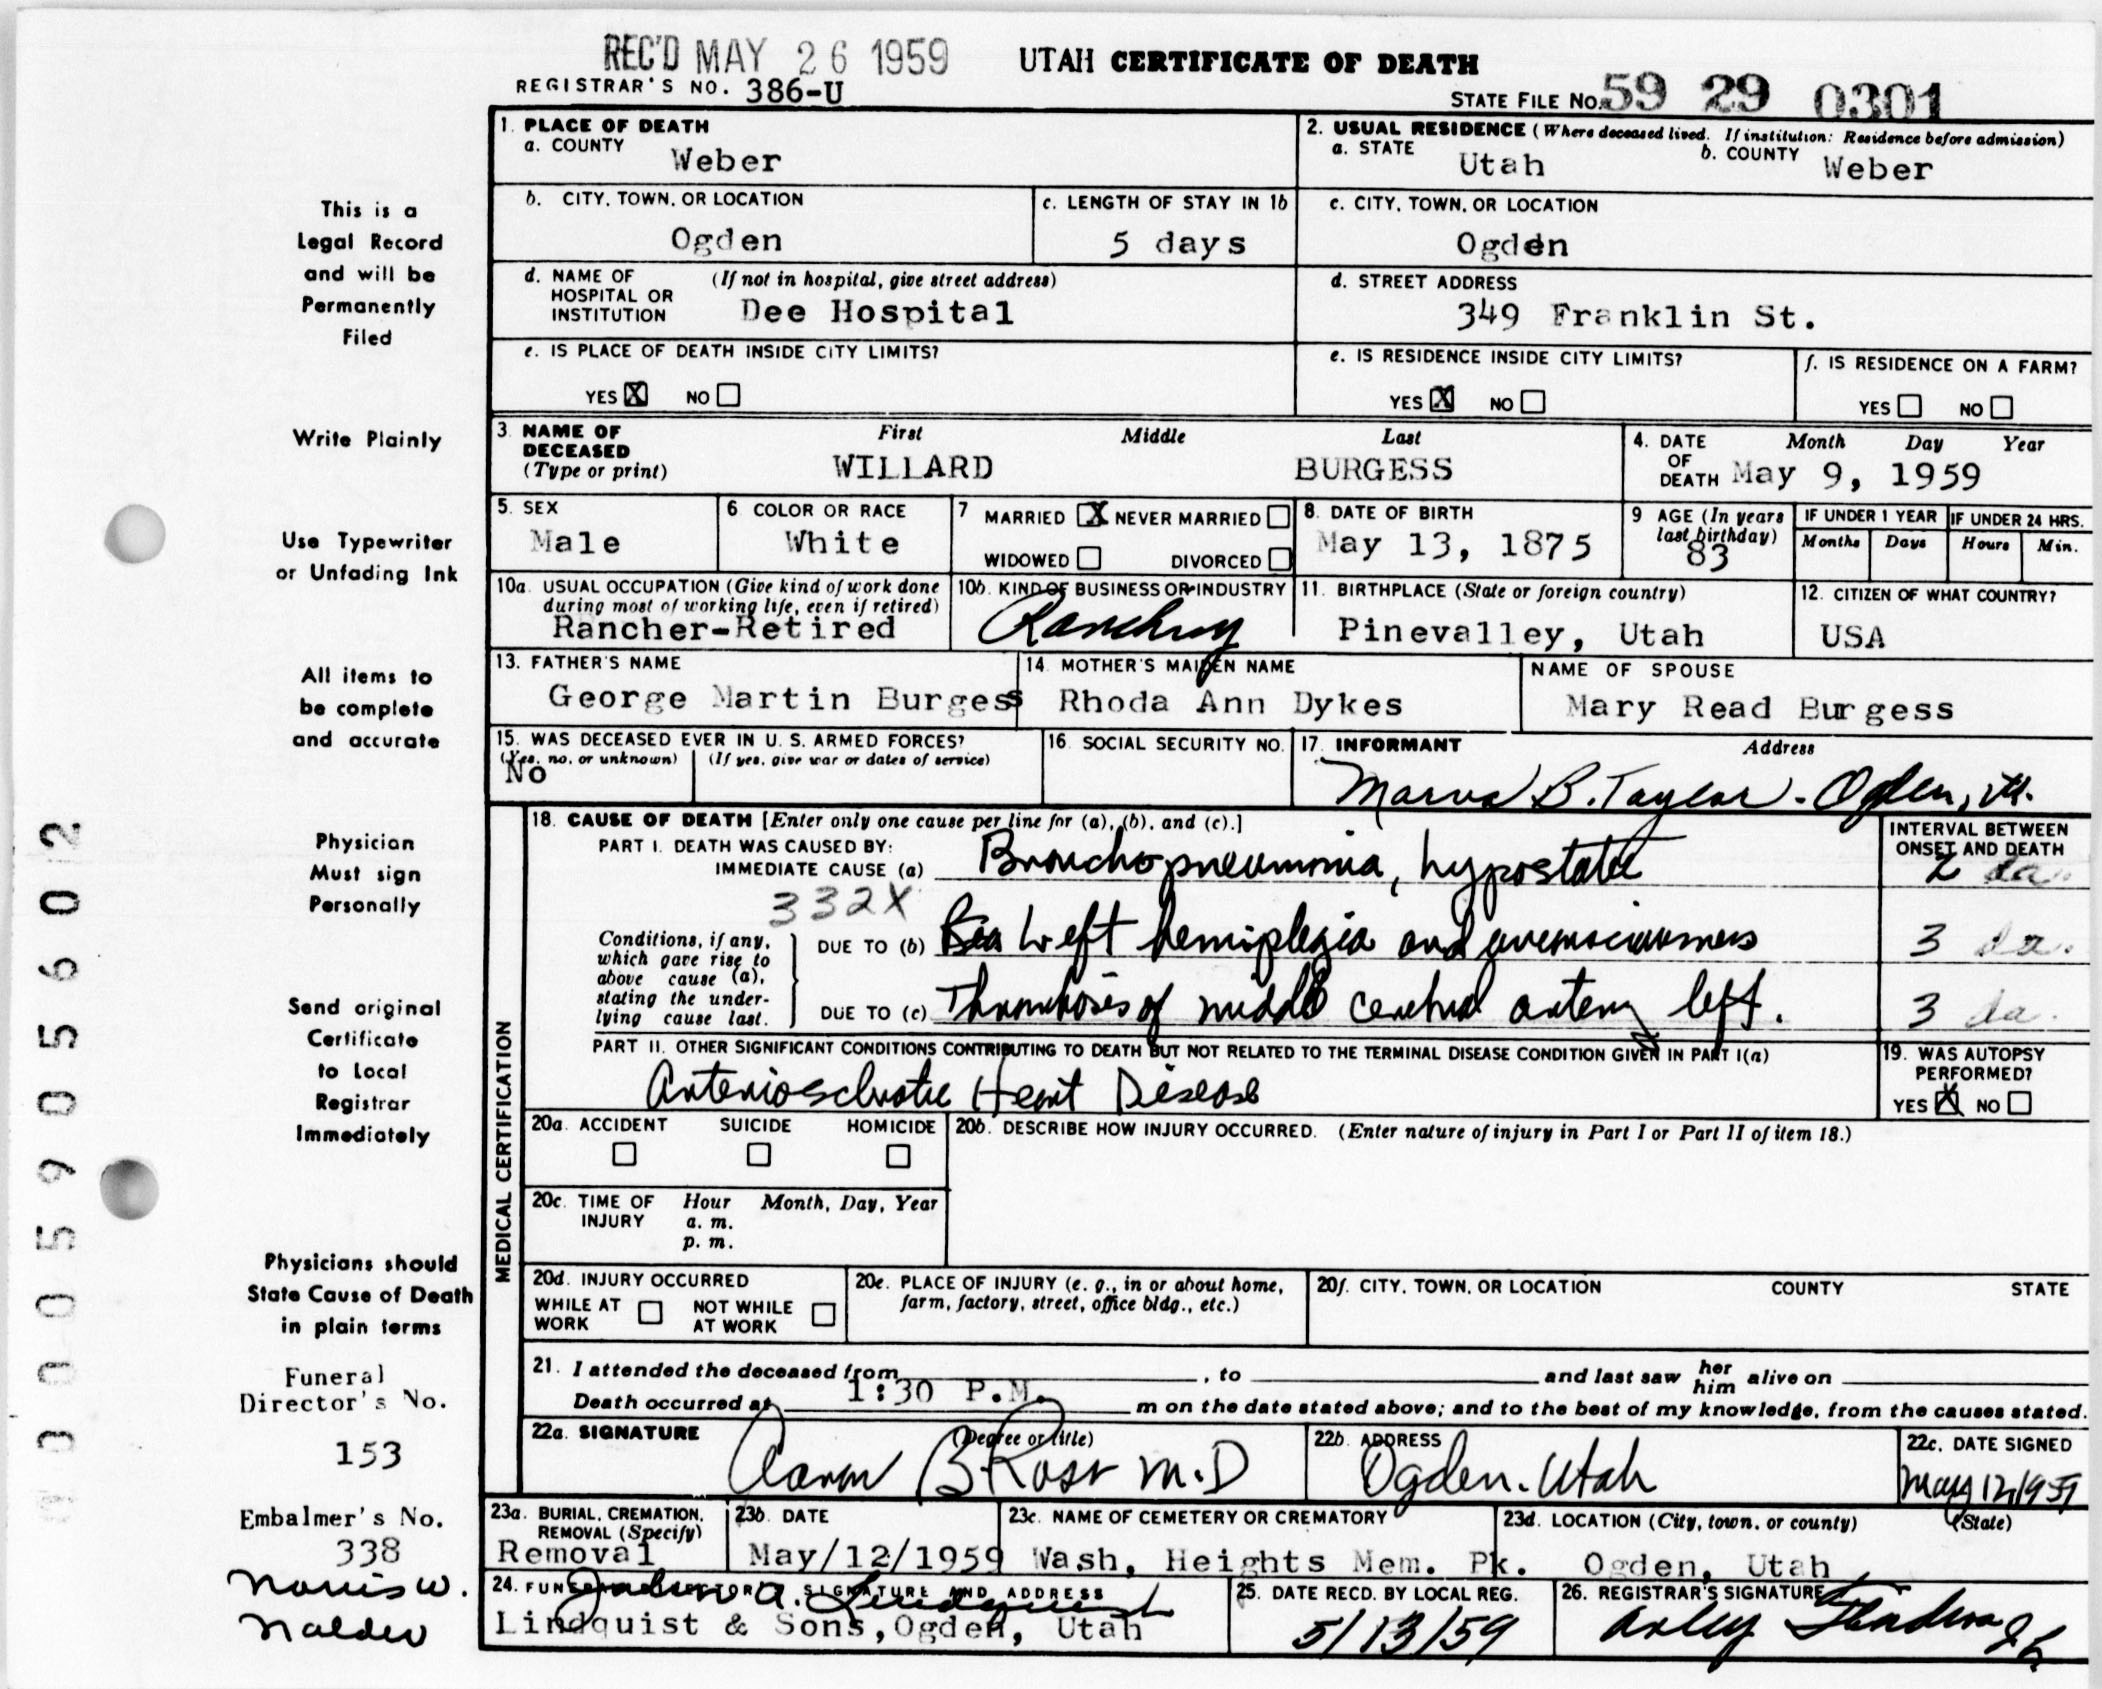 REC'D MAY 26 1959 UTAH CERTIFICATE OF DEATH
REGISTRAR'S NO. 386-U STATE FILE NO. 59 29 0301
1. PLACE OF DEATH
a. COUNTY
Weber
2. USUAL RESIDENCE (Where deceased lived. If institution: Residence before admission)
a. STATE Utah b. COUNTY Weber
b. CITY, TOWN, OR LOCATION
Ogden
c. LENGTH OF STAY IN 1b
5 days
c. CITY, TOWN, OR LOCATION
Ogden
d. NAME OF HOSPITAL OR INSTITUTION (If not in hospital, give street address)
Dee Hospital
d. STREET ADDRESS
349 Franklin St.
e. IS PLACE OF DEATH INSIDE CITY LIMITS?
YES X NO
e. IS RESIDENCE INSIDE CITY LIMITS?
YES X NO
f. IS RESIDENCE ON A FARM?
YES NO
3. NAME OF DECEASED (Type or print)
First Middle Last
WILLARD BURGESS
4. DATE OF DEATH Month Day Year
May 9, 1959
5. SEX
Male
6 COLOR OR RACE
White
7 MARRIED X NEVER MARRIED
WIDOWED DIVORCED
8. DATE OF BIRTH
May 13, 1875
9 AGE (In years last birthday)
83
IF UNDER 1 YEAR IF UNDER 24 HRS.
Months Days Hours Min.
10a. USUAL OCCUPATION (Give kind of work done during most of working life, even if retired)
Rancher-Retired
10b. KIND OF BUSINESS OR INDUSTRY
Ranching
11. BIRTHPLACE (State or foreign country)
Pinevalley, Utah
12. CITIZEN OF WHAT COUNTRY?
USA
13. FATHER'S NAME
George Martin Burgess
14. MOTHER'S MAIDEN NAME
Rhoda Ann Dykes
NAME OF SPOUSE
Mary Read Burgess
15. WAS DECEASED EVER IN U. S. ARMED FORCES?
(Yes, no, or unknown) (If yes, give war or dates of service)
No
16. SOCIAL SECURITY NO.
17. INFORMANT Address
B. Taylor - Ogden, Ut.
18. CAUSE OF DEATH [Enter only one cause per line for (a), (b), and (c).]
INTERVAL BETWEEN ONSET AND DEATH
PART I. DEATH WAS CAUSED BY:
IMMEDIATE CAUSE (a) Bronchopneumonia, hypostatic 2 da.
332X
Conditions, if any, which gave rise to above cause (a), stating the underlying cause last.
DUE TO (b) Left hemiplegia and unconsciousness 3 da.
DUE TO (c) Thrombosis of middle cerebral artery left. 3 da.
PART II. OTHER SIGNIFICANT CONDITIONS CONTRIBUTING TO DEATH BUT NOT RELATED TO THE TERMINAL DISEASE CONDITION GIVEN IN PART I(a)
Arteriosclerotic Heart Disease
19. WAS AUTOPSY PERFORMED?
YES X NO
20a. ACCIDENT SUICIDE HOMICIDE
20b. DESCRIBE HOW INJURY OCCURRED. (Enter nature of injury in Part I or Part II of item 18.)
20c. TIME OF INJURY Hour Month, Day, Year
a. m.
p. m.
20d. INJURY OCCURRED
WHILE AT WORK NOT WHILE AT WORK
20e. PLACE OF INJURY (e. g., in or about home, farm, factory, street, office bldg., etc.)
20f. CITY, TOWN, OR LOCATION COUNTY STATE
21. I attended the deceased from , to and last saw her him alive on
Death occurred at 1:30 P.M. m on the date stated above; and to the best of my knowledge, from the causes stated.
22a. SIGNATURE (Degree or title)
Aaron B. Ross M.D
22b. ADDRESS
Ogden, Utah
22c. DATE SIGNED
May 12, 1959
23a. BURIAL, CREMATION, REMOVAL (Specify)
Removal
23b. DATE
May/12/1959
23c. NAME OF CEMETERY OR CREMATORY
Wash, Heights Mem. Pk.
23d. LOCATION (City, town, or county) (State)
Ogden, Utah
24. FUNERAL DIRECTOR'S SIGNATURE AND ADDRESS
A. Lindquist
Lindquist & Sons, Ogden, Utah
25. DATE RECD. BY LOCAL REG.
5/13/59
26. REGISTRAR'S SIGNATURE
MEDICAL CERTIFICATION
This is a
Legal Record
and will be
Permanently
Filed
Write Plainly
Use Typewriter
or Unfading Ink
All items to
be complete
and accurate
Physician
Must sign
Personally
Send original
Certificate
to Local
Registrar
Immediately
Physicians should
State Cause of Death
in plain terms
Funeral
Director's No.
153
Embalmer's No.
338
Norris W.
Nalder
0000590560 2